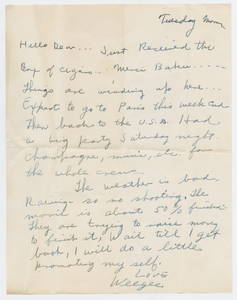 Tuesday Morn
Hello Dear... Just Received the
Box of Cigars... Merci Baku....
Things are winding up here...
Expect to go to Paris this week End
then back to the U.S.A. Had
a big party Saturday night.
Champagne, music, etc. for
the whole crew.
The weather is bad.
Raining - so no shooting. The
movie is about 50% finished
They are trying to raise money
to finish it; Wait till I get
back, I will do a little
promoting my self.
Love
Weegee